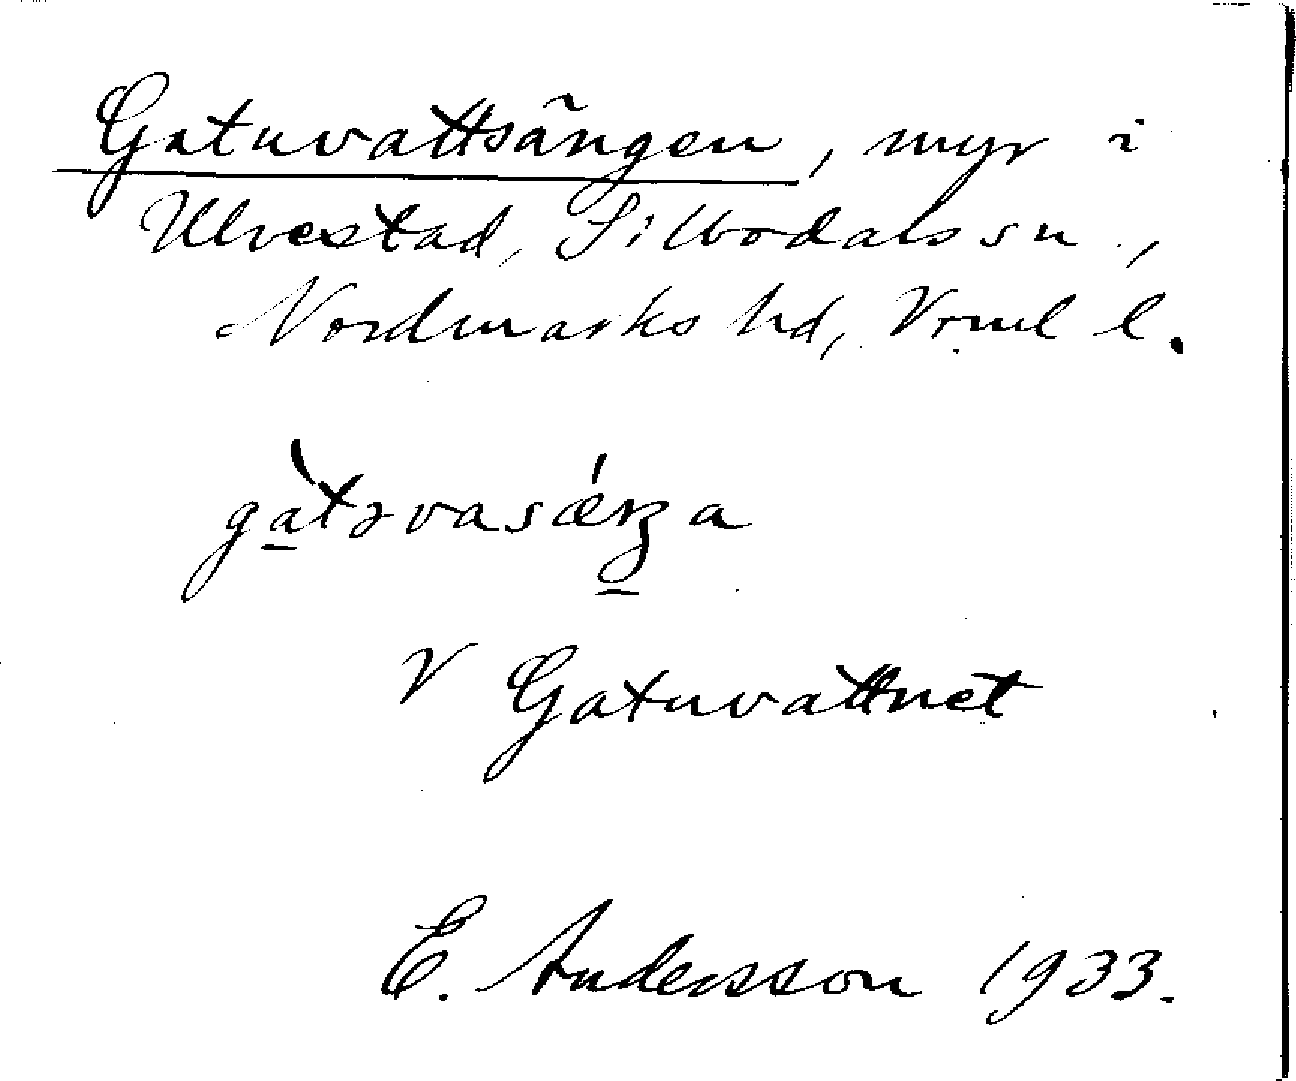 Gatuvattsängen, myr i
Ulvestad, Silbodals sn.,
Nordmarks hd, Vrml l.
V Gatuvattnet
E. Andersson 1933.